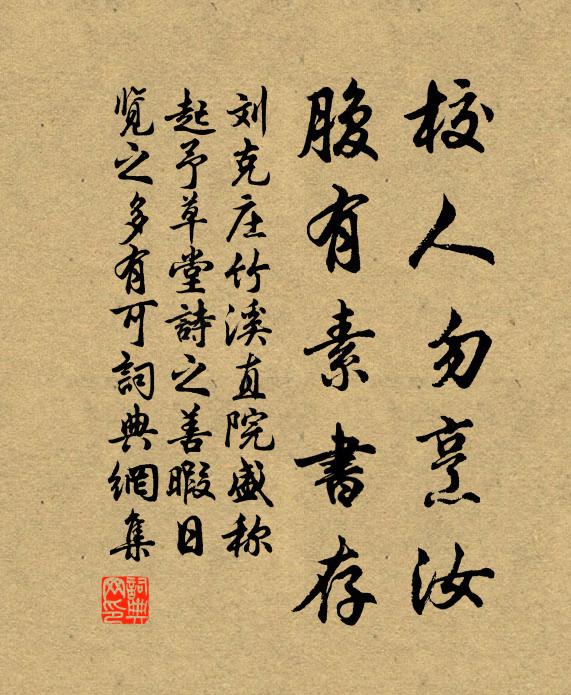 校人勿烹汝
腹有素書存
刘克庄竹溪直院盛称
起予草堂詩之善暇日
览之多有可詞典網集
詞典网印